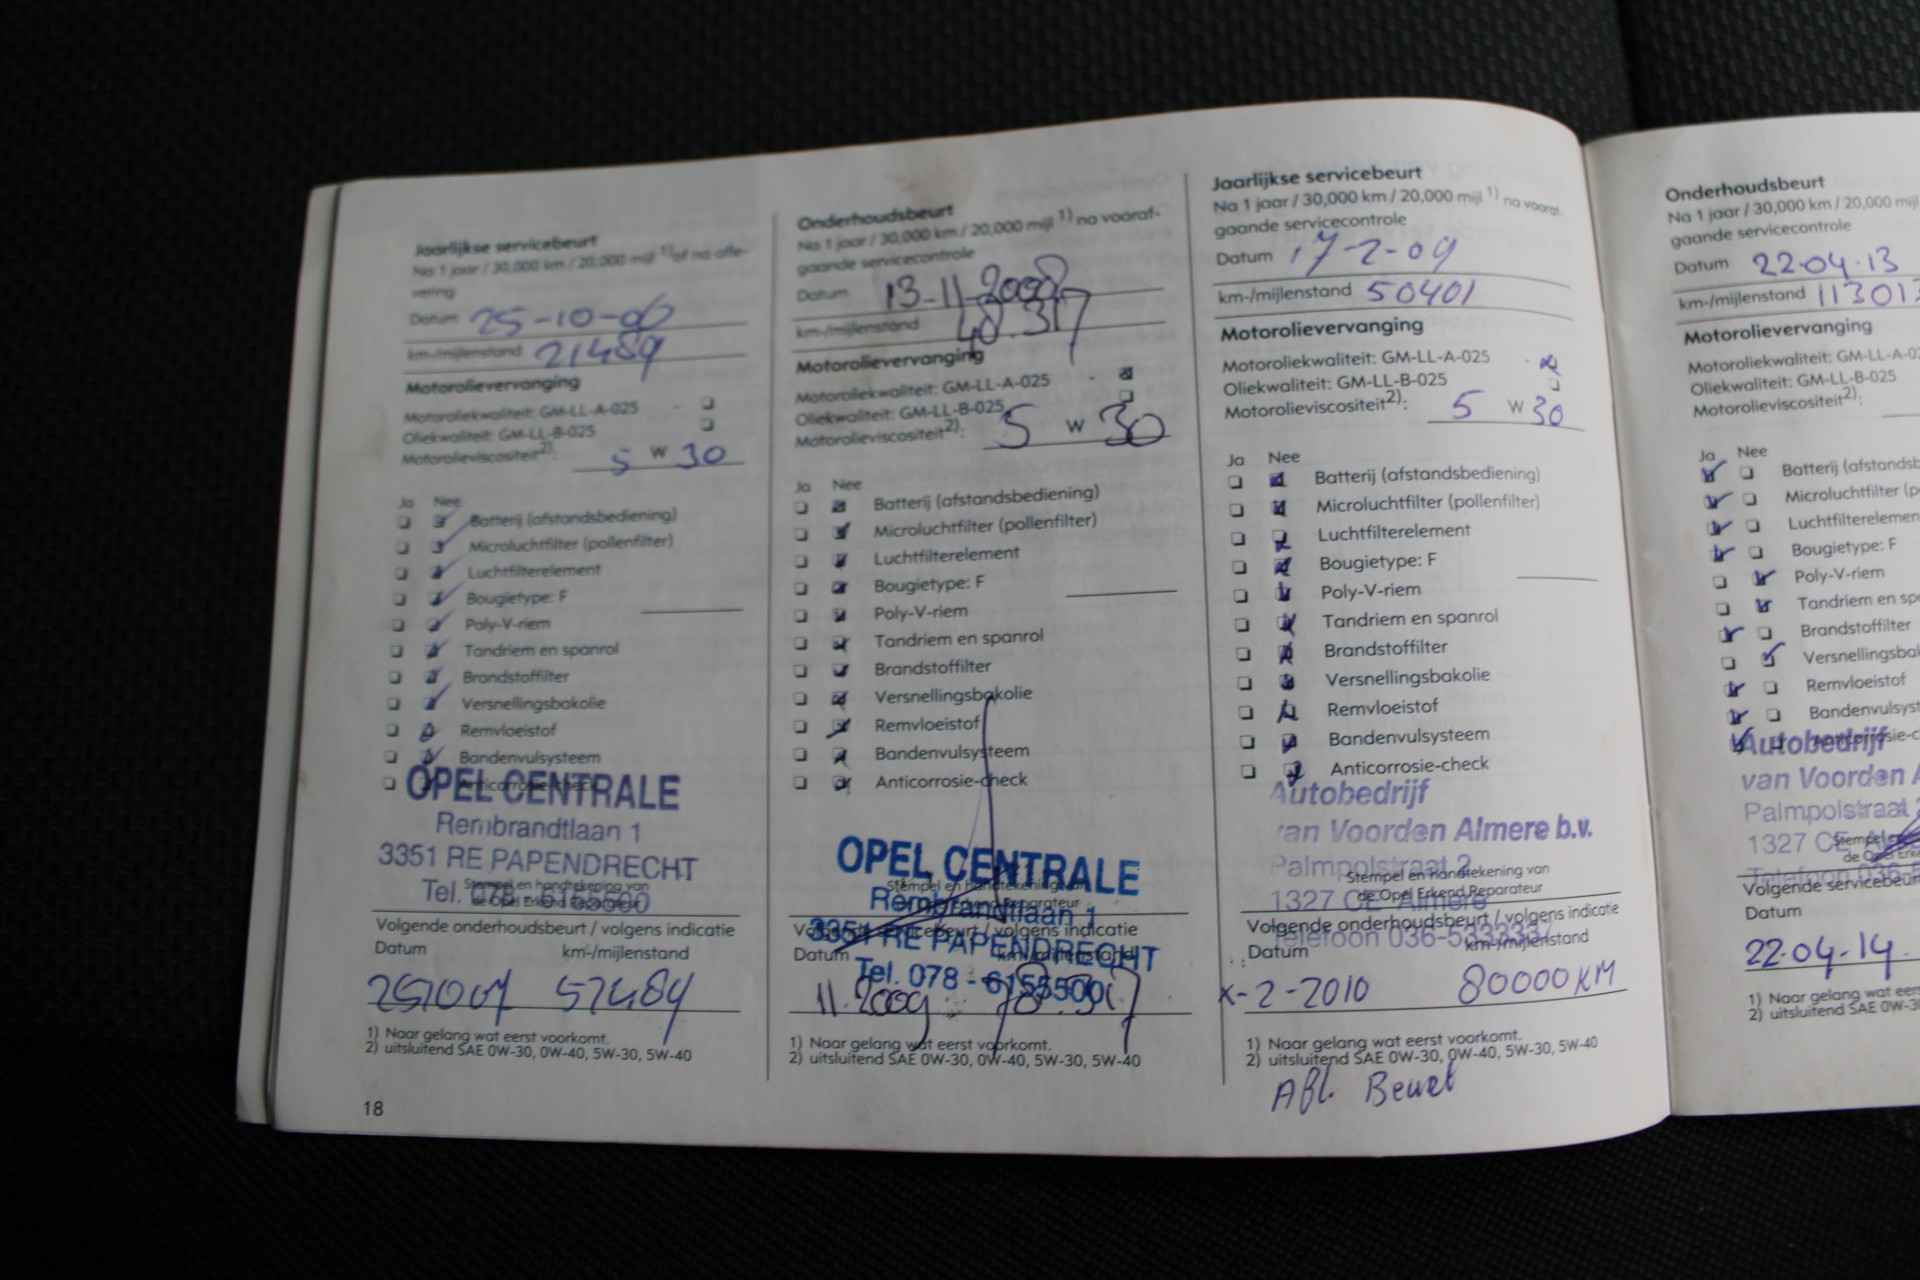 Jaarlijkse servicebeurt
Na 1 jaar / 30,000 km / 20,000 mijl 1) of na afle-
vering
Datum 25-10-06
km-/mijlenstand 21489
Motorolievervanging
Motoroliekwaliteit: GM-LL-A-025
Oliekwaliteit: GM-LL-B-025
Motorolieviscositeit2): 5 W 30
Ja Nee
Batterij (afstandsbediening)
Microluchtfilter (pollenfilter)
Luchtfilterelement
Bougietype: F
Poly-V-riem
Tandriem en spanrol
Brandstoffilter
Versnellingsbakolie
Remvloeistof
Bandenvulsysteem
Anticorrosie-check
OPEL CENTRALE
Rembrandtlaan 1
3351 RE PAPENDRECHT
Tel. 078 - 6155500
Stempel en handtekening van
de Opel Erkend Reparateur
Volgende onderhoudsbeurt / volgens indicatie
Datum km-/mijlenstand
251007 52489
1) Naar gelang wat eerst voorkomt.
2) uitsluitend SAE 0W-30, 0W-40, 5W-30, 5W-40
18
Onderhoudsbeurt
Na 1 jaar / 30,000 km / 20,000 mijl 1) na vooraf-
gaande servicecontrole
Datum 13-11-2008
km-/mijlenstand 48.317
Motorolievervanging
Motoroliekwaliteit: GM-LL-A-025
Oliekwaliteit: GM-LL-B-025
Motorolieviscositeit2): 5 W 30
Ja Nee
Batterij (afstandsbediening)
Microluchtfilter (pollenfilter)
Luchtfilterelement
Bougietype: F
Poly-V-riem
Tandriem en spanrol
Brandstoffilter
Versnellingsbakolie
Remvloeistof
Bandenvulsysteem
Anticorrosie-check
OPEL CENTRALE
Stempel en handtekening van
Rembrandtlaan 1
Erkend Reparateur
3351 RE PAPENDRECHT
Volgende servicebeurt / volgens indicatie
Datum km-/mijlenstand
Tel. 078 - 6155500
11.2009 78.317
1) Naar gelang wat eerst voorkomt.
2) uitsluitend SAE 0W-30, 0W-40, 5W-30, 5W-40
Jaarlijkse servicebeurt
Na 1 jaar / 30,000 km / 20,000 mijl 1) na vooraf-
gaande servicecontrole
Datum 17-2-09
km-/mijlenstand 50401
Motorolievervanging
Motoroliekwaliteit: GM-LL-A-025
Oliekwaliteit: GM-LL-B-025
Motorolieviscositeit2): 5 W 30
Ja Nee
Batterij (afstandsbediening)
Microluchtfilter (pollenfilter)
Luchtfilterelement
Bougietype: F
Poly-V-riem
Tandriem en spanrol
Brandstoffilter
Versnellingsbakolie
Remvloeistof
Bandenvulsysteem
Anticorrosie-check
Autobedrijf
van Voorden Almere b.v.
Palmpolstraat 2
Stempel en handtekening van
de Opel Erkend Reparateur
1327 CE Almere
Volgende onderhoudsbeurt / volgens indicatie
Telefoon
Datum km-/mijlenstand
x-2-2010 80000 KM
1) Naar gelang wat eerst voorkomt.
2) uitsluitend SAE 0W-30, 0W-40, 5W-30, 5W-40
Afl. Beurt
Onderhoudsbeurt
Na 1 jaar / 30,000 km / 20,000 mijl
gaande servicecontrole
Datum 22-04-13
km-/mijlenstand 11301
Motorolievervanging
Motoroliekwaliteit: GM-LL-A-02
Oliekwaliteit: GM-LL-B-025
Motorolieviscositeit2):
Ja Nee
Batterij (afstandsb
Microluchtfilter (p
Luchtfilterelemen
Bougietype: F
Poly-V-riem
Tandriem en sp
Brandstoffilter
Versnellingsbak
Remvloeistof
Bandenvulsyst
Autobedrijf
van Voorden A
Palmpolstraat
1327 CE
Stempel
de Opel Erk
Telefoon 036-5
Volgende servicebeur
Datum
22-04-14.
1) Naar gelang wat eers
2) uitsluitend SAE 0W-3